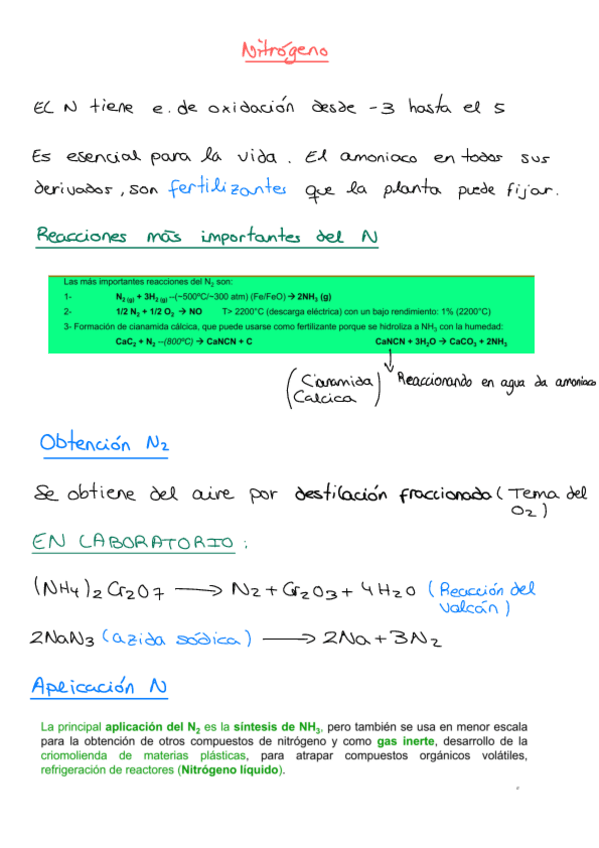 Nitrógeno
EL N tiene e. de oxidación desde -3 hasta el 5
Es esencial para la vida. El amoniaco en todos sus
derivados, son fertilizantes que la planta puede fijar.
Reacciones más importantes del N
Las más importantes reacciones del N₂ son:
1- N₂ (g) + 3H₂ (g) --(~500ºC/~300 atm) (Fe/FeO) → 2NH₃ (g)
2- 1/2 N₂ + 1/2 O₂ → NO T> 2200°C (descarga eléctrica) con un bajo rendimiento: 1% (2200°C)
3- Formación de cianamida cálcica, que puede usarse como fertilizante porque se hidroliza a NH₃ con la humedad:
CaC₂ + N₂ --(800ºC) → CaNCN + C CaNCN + 3H₂O → CaCO₃ + 2NH₃
(Cianamida Calcica) Reaccionando en agua da amoniaco
Obtención N₂
Se obtiene del aire por destilación fraccionada (Tema del
O₂)
EN LABORATORIO:
(NH₄)₂Cr₂O₇ → N₂ + Cr₂O₃ + 4H₂O (Reacción del
valcán)
2NaN₃ (azida sódica) → 2Na + 3N₂
Aplicación N
La principal aplicación del N₂ es la síntesis de NH₃, pero también se usa en menor escala
para la obtención de otros compuestos de nitrógeno y como gas inerte, desarrollo de la
criomolienda de materias plásticas, para atrapar compuestos orgánicos volátiles,
refrigeración de reactores (Nitrógeno líquido).